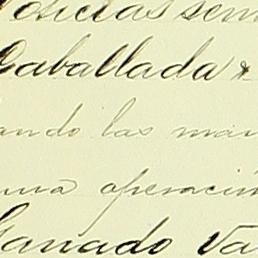 Noticias sem
Caballada &
ando las man
una operación
Ganado Va